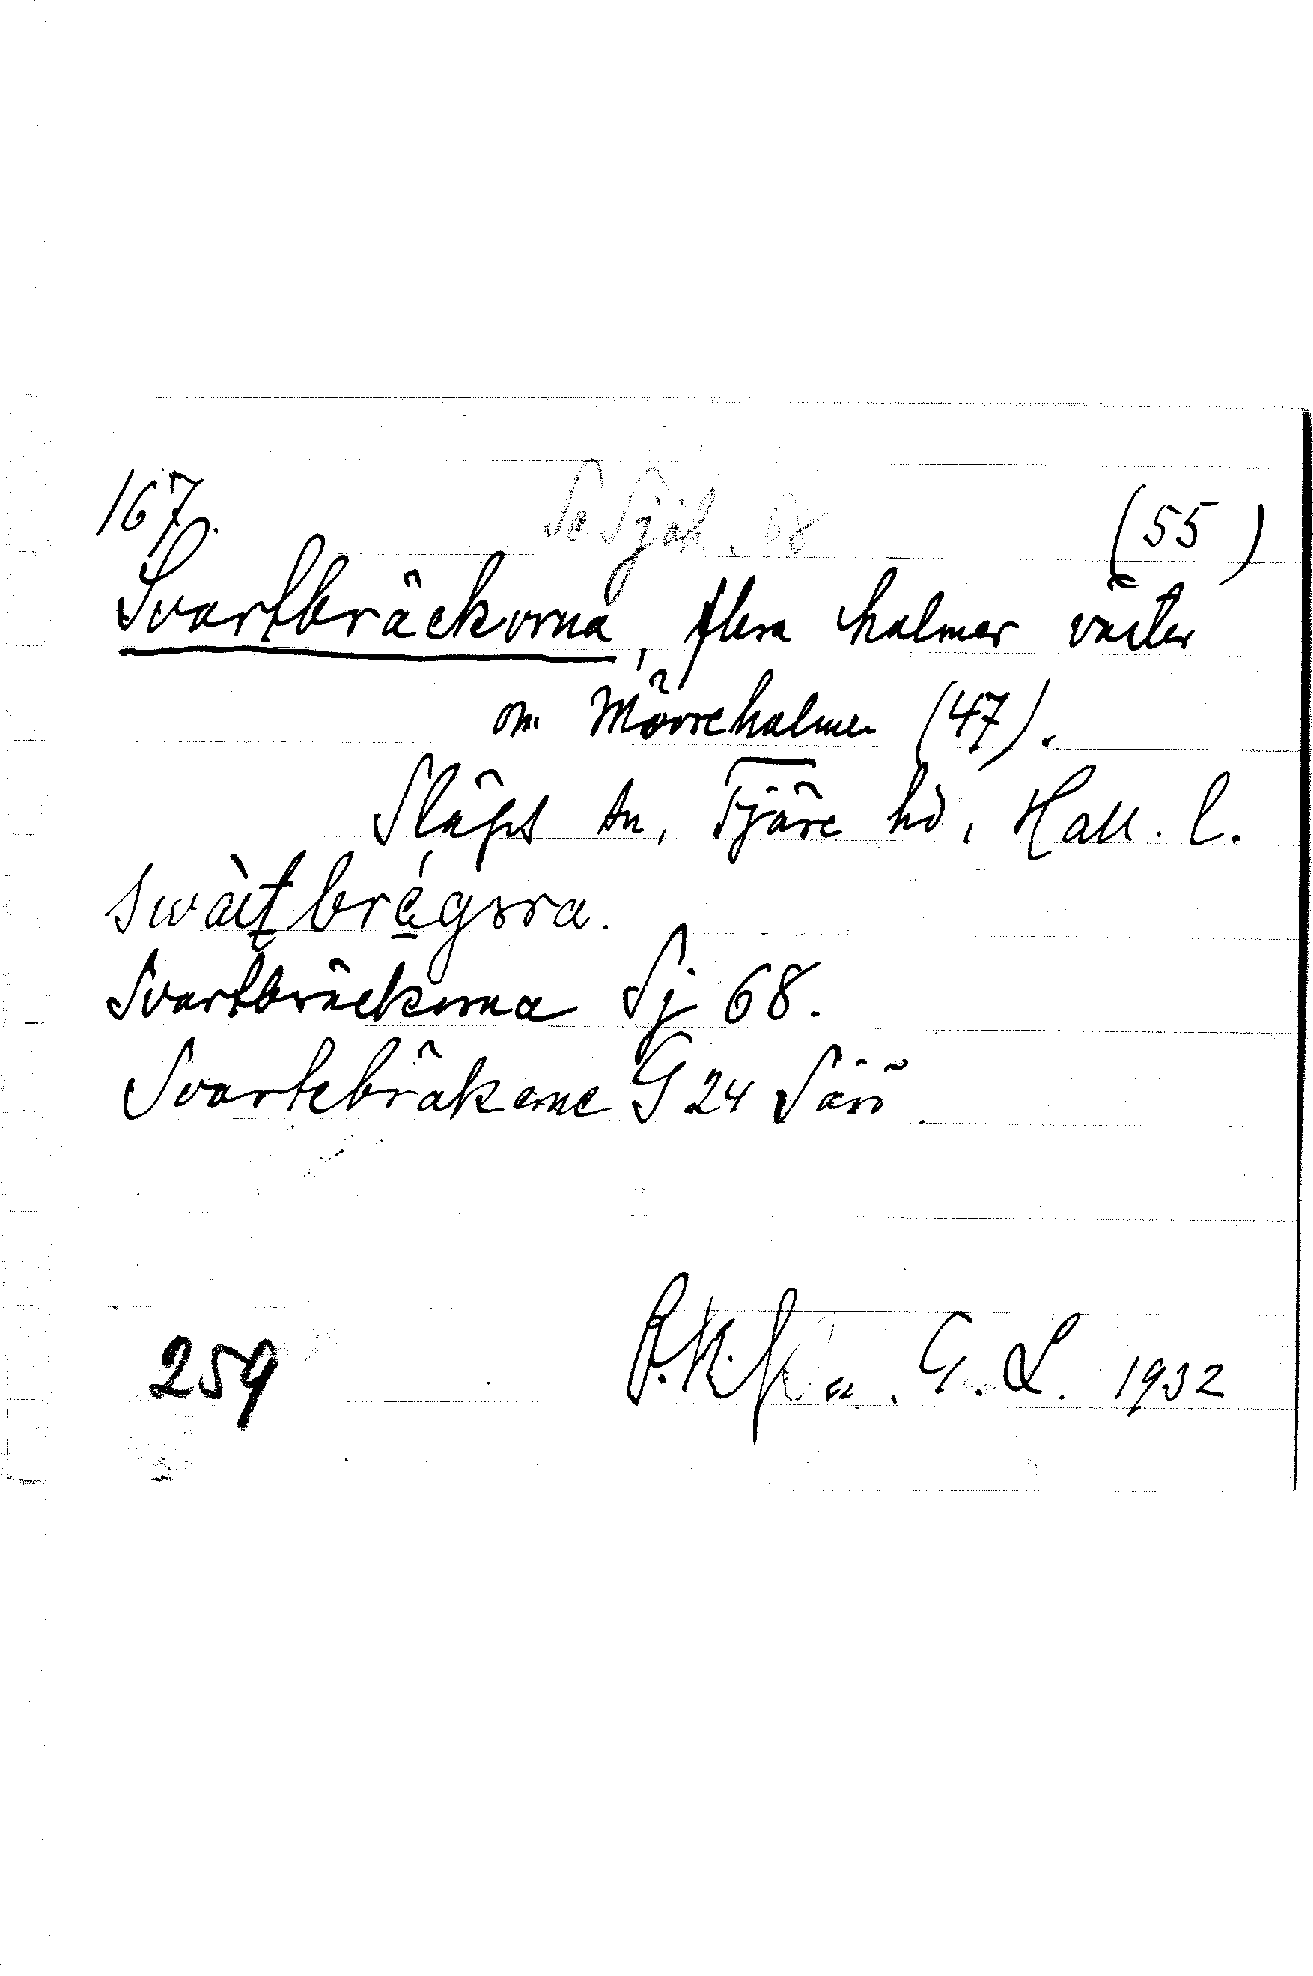 167. Se Sjök. 68 (55)
Svartbräckorna, flera holmar väster
om Mörreholmen (47).
Släps sn, Fjäre hd, Hall. l.
Svartbräckorna Sj 68.
Svartebräkorne G 24 Särö
259 G. L. 1932